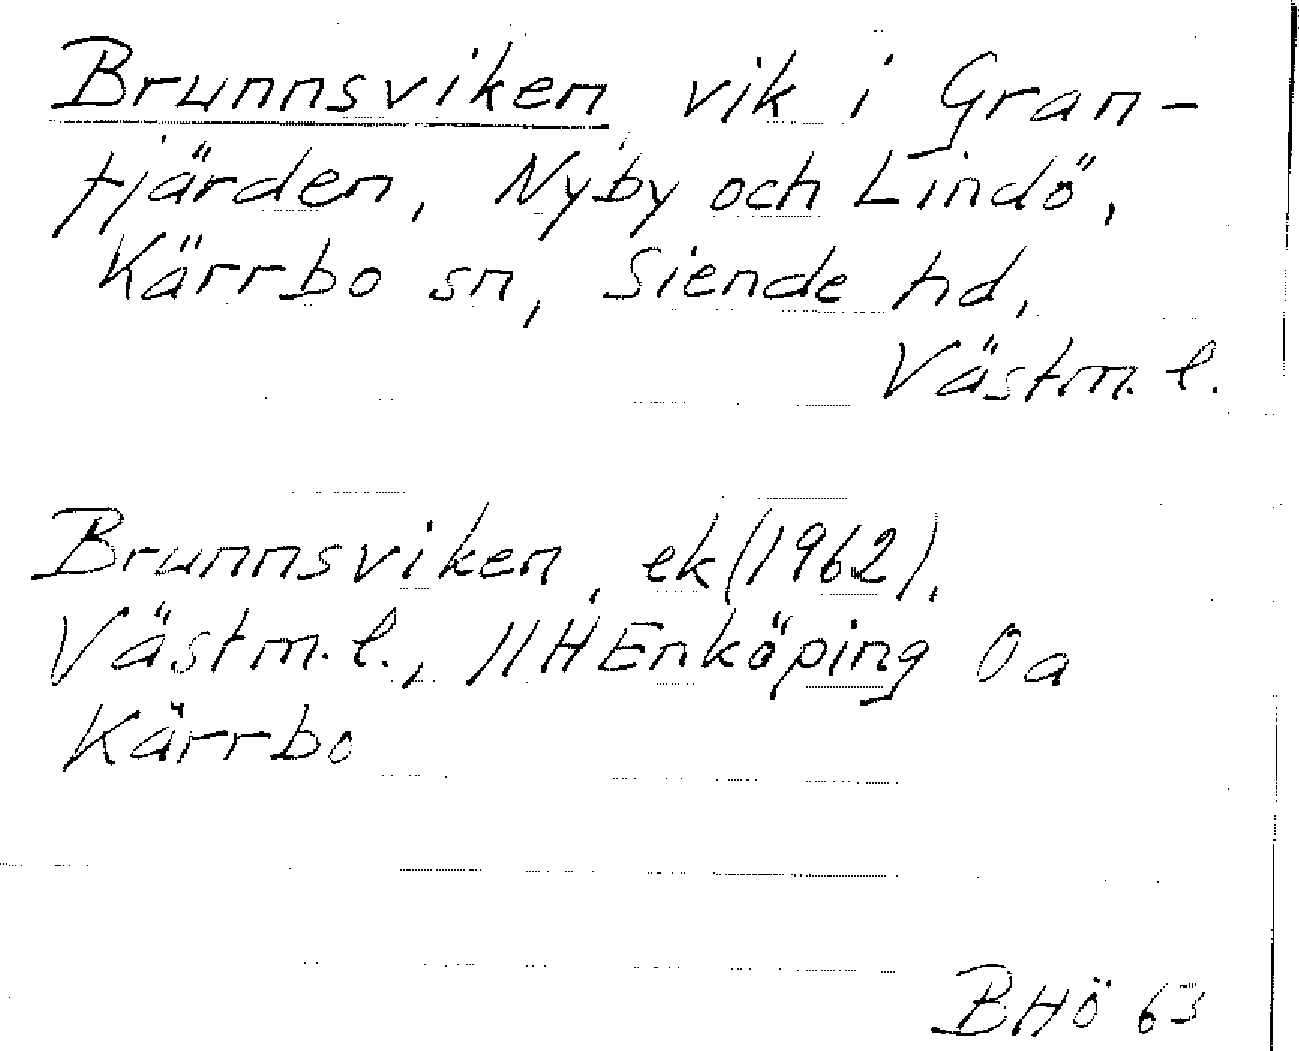 Brunnsviken, vik i Gran-
fjärden, Nyby och Lindö,
Kärrbo sn, Siende hd,
Västm. l.
Brunnsviken, ek (1962),
Västm. l., 11H Enköping 0a
Kärrbo
BHÖ 63